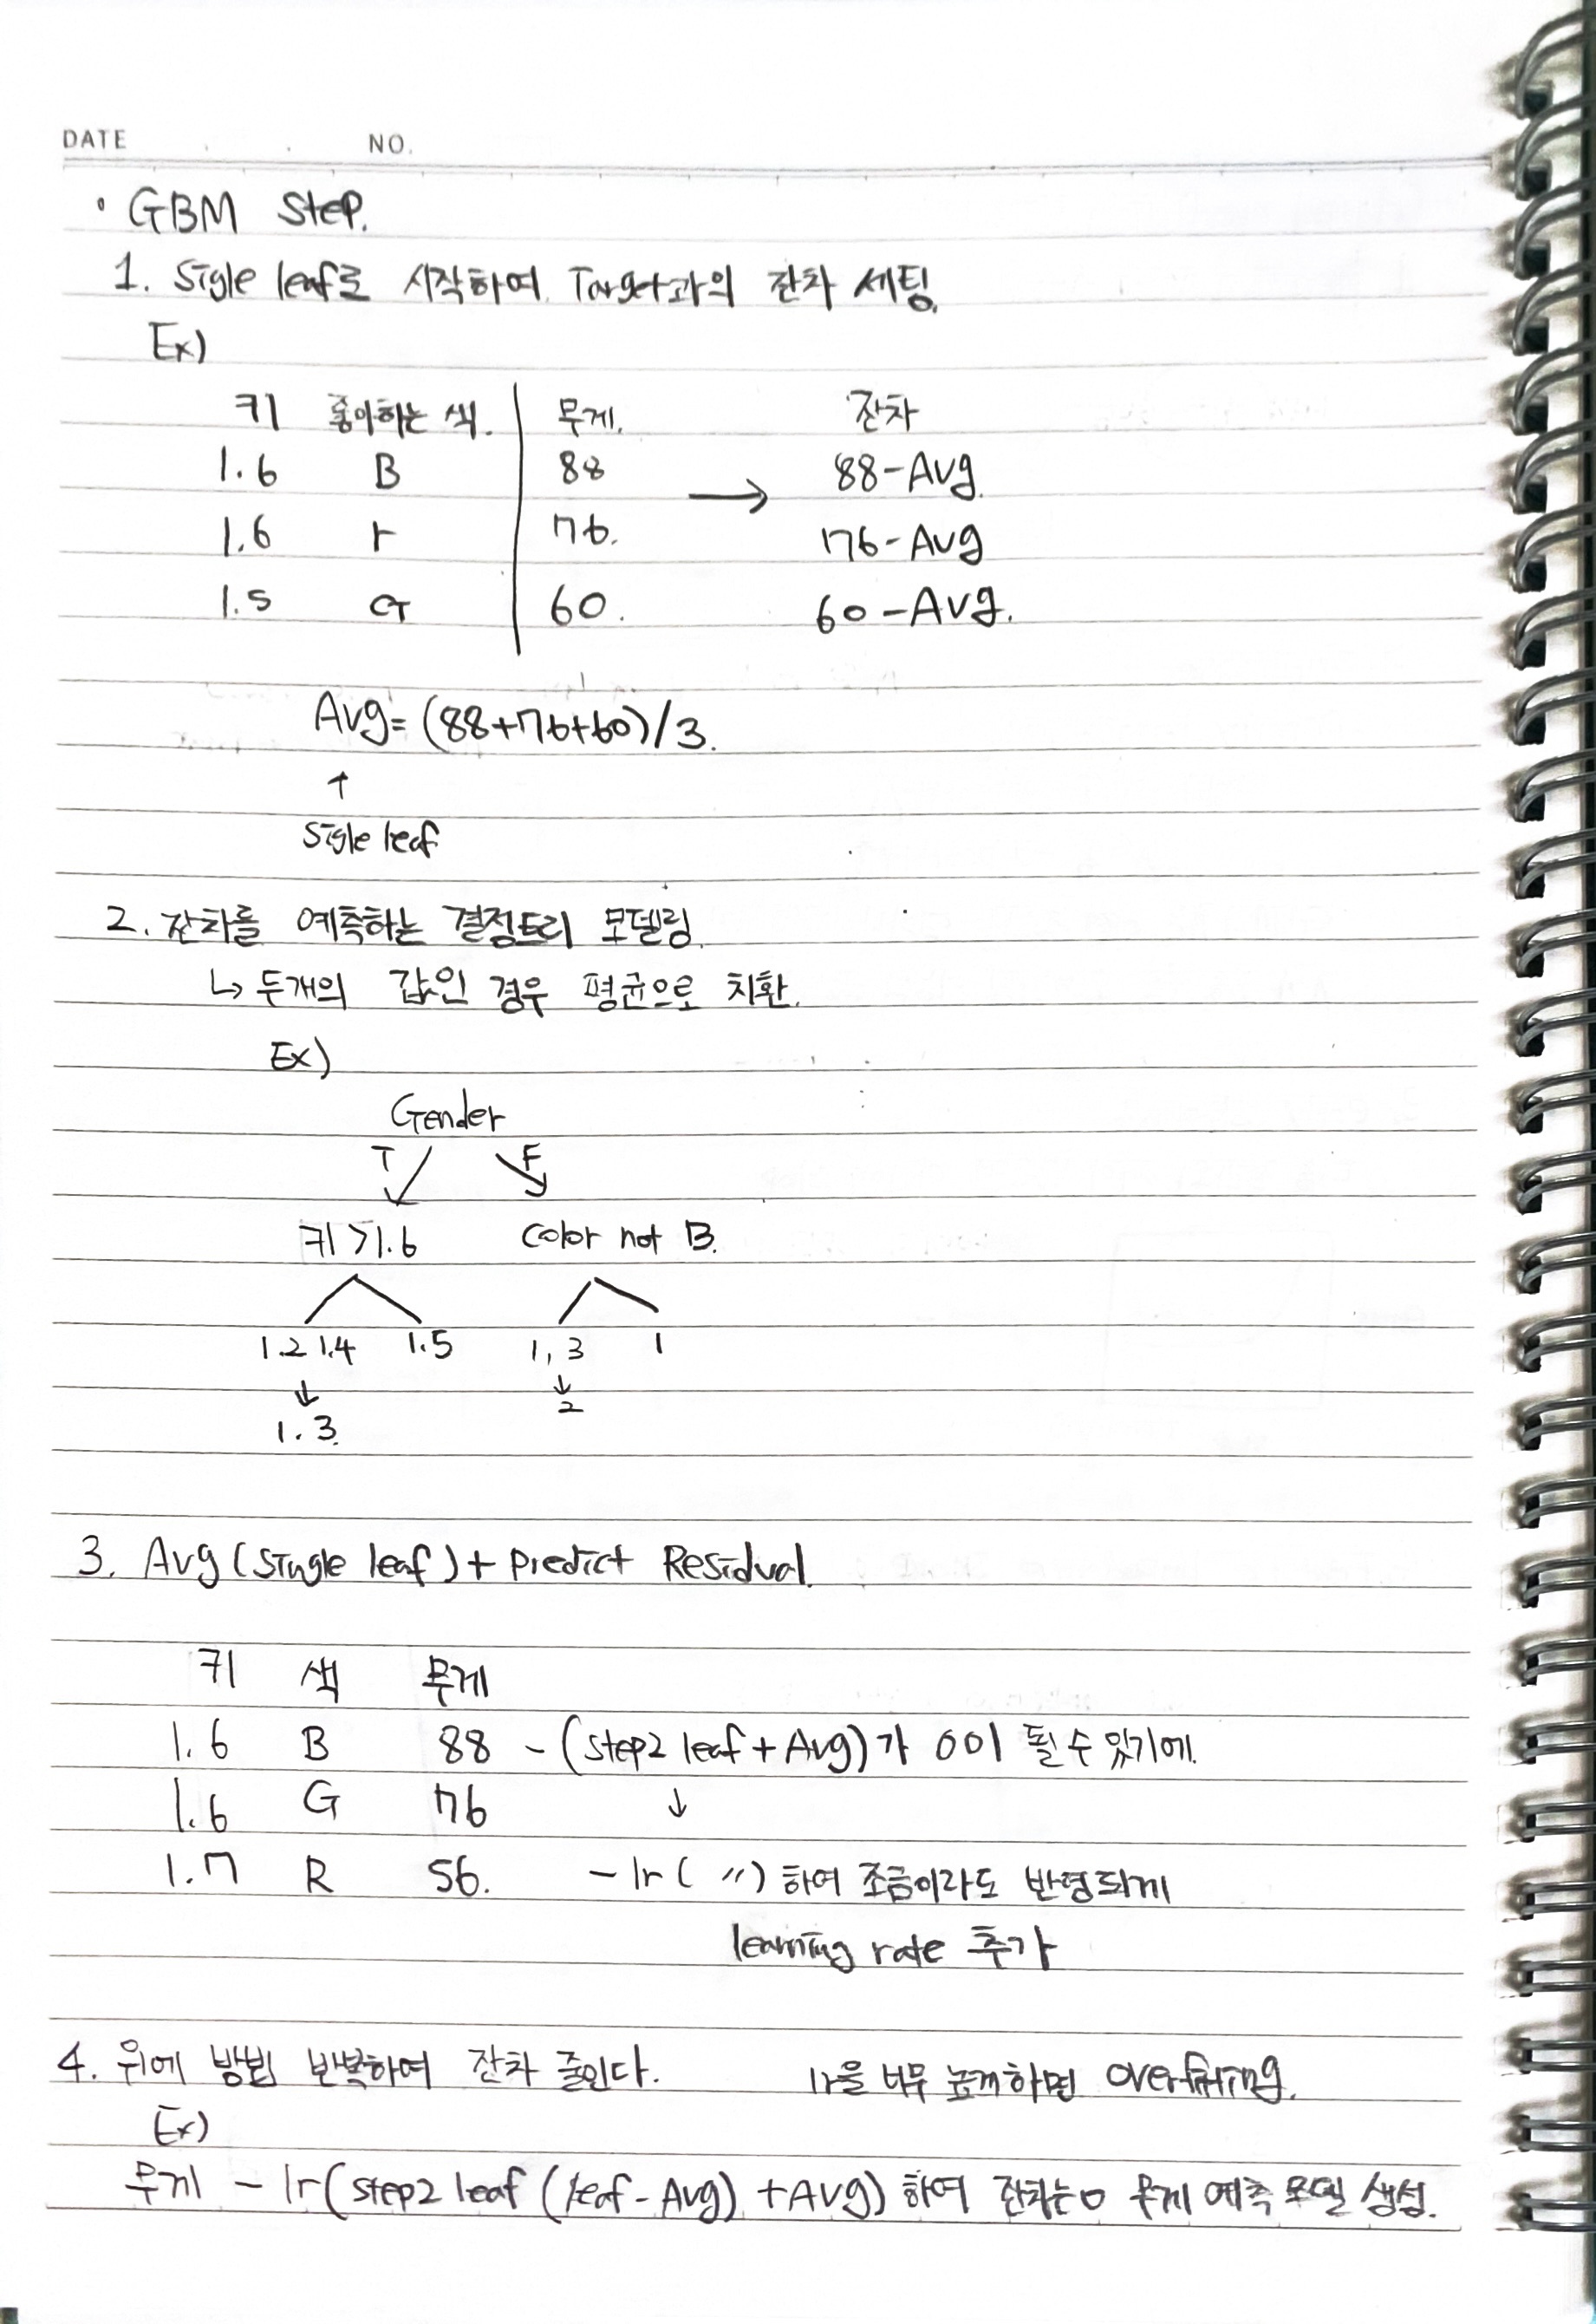 DATE . . NO.
• GBM Step.
1. Sigle leaf로 시작하여 Target과의 잔차 세팅.
Ex)
키 좋아하는 색. 무게. 잔차
1.6 B 88 → 88-Avg.
1.6 r 76. 76-Avg
1.5 G 60. 60-Avg.
Avg= (88+76+60)/3.
↑
Sigle leaf
2. 잔차를 예측하는 결정트리 모델링.
↳ 두개의 값인 경우 평균으로 치환.
Ex)
Gender
T F
키>1.6 Color not B.
1.2 1.4 1.5 1, 3 1
↓ ↓
1.3. 2
3. Avg (Single leaf) + Predict Residual.
키 색 무게
1.6 B 88 - (Step2 leaf + Avg)가 0이 될 수 있기에.
1.6 G 76 ↓
1.7 R 56. - lr ( 〃) 하여 조금이라도 반영되게
learning rate 추가
4. 위에 방법 반복하여 잔차 줄인다. lr을 너무 높게하면 overfitting.
Ex)
무게 - lr(step2 leaf (leaf - Avg) + Avg) 하여 잔차는 0 무게 예측 모델 생성.